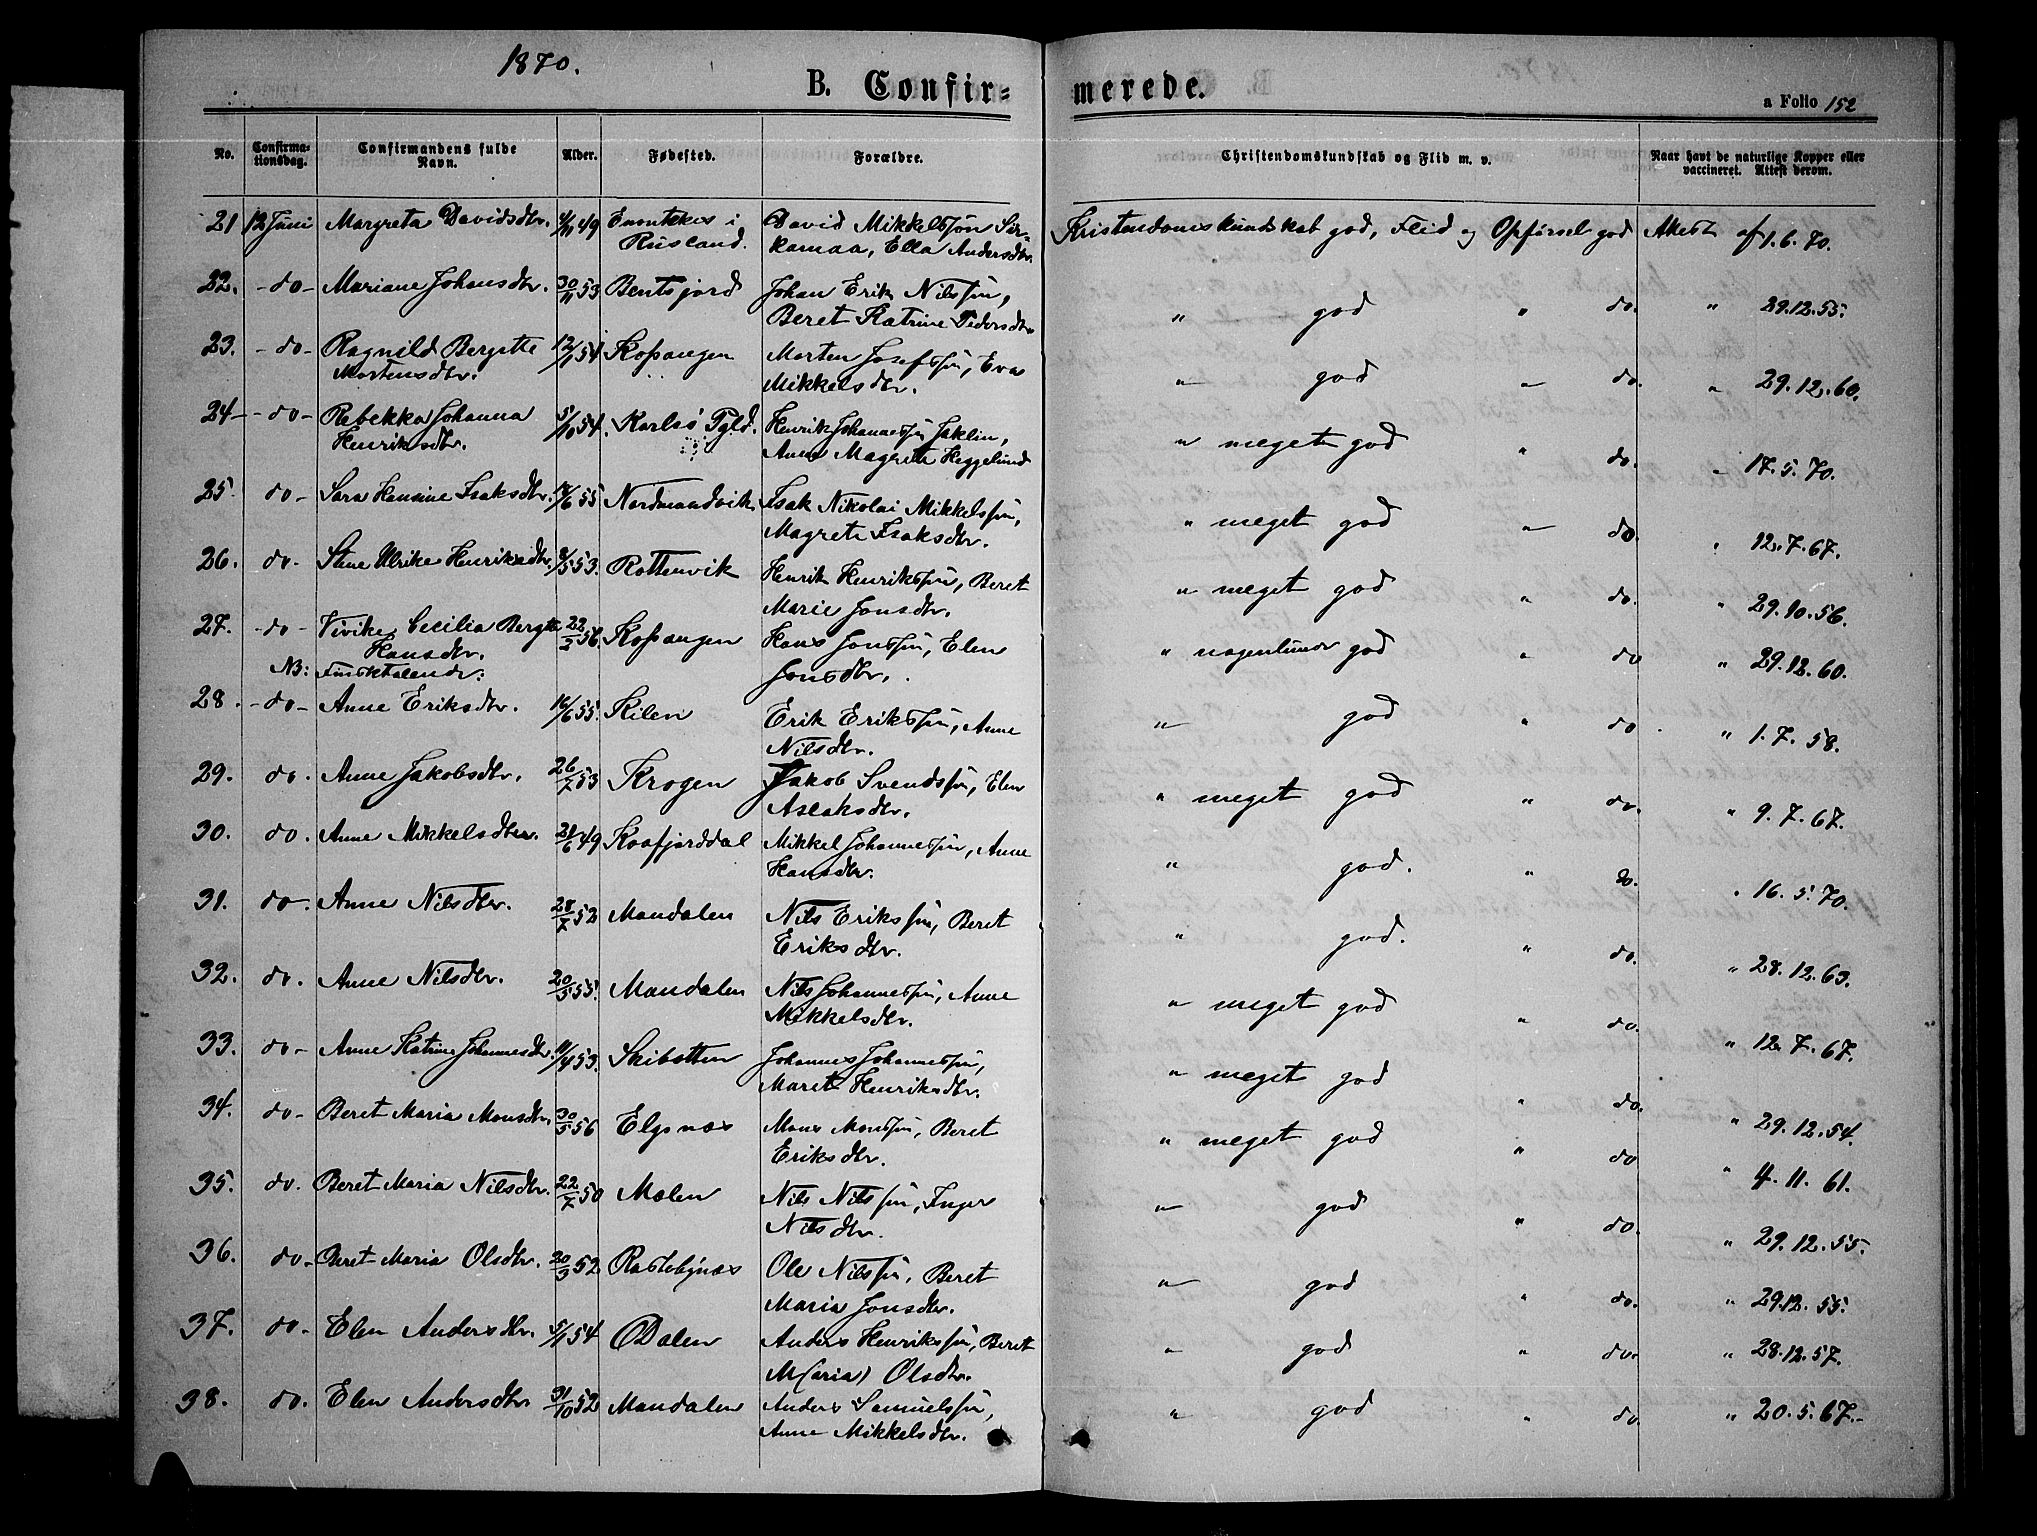 1870.
B. Confir=
merede.
a Folio 152
No.
Confirma-
tionsdag.
Confirmandens fulde
Navn.
Alder.
Fødested.
Forældre.
Christendomskundskab og Flid m. v.
Naar havt de naturlige Kopper eller
vaccineret. Attest derom.
21 12 Juni Margreta Davidsdtr. 4/11 49 Enontekis i David Mikkelssøn Sir- Kristendomskundskab god, Flid og Opførsel god Attest af 1.6.70.
Rusland. kamaa, Ella Andersdtr.
22. -do- Mariane Johansdtr. 30/11 53 Bentsjord Johan Erik Nilssøn, " god " do. " 29.12.55.
Beret Katrine Pedersdtr
23. -do- Ragnild Bergitte 12/1 54. Kopangen Morten Josefssøn, Eva " god " do. " 29.12.60.
Mortensdtr. Mikkelsdtr.
24- -do- Rebekka Johanna 5/10 54. Karlsø Pgld. Henrik Johannessøn Jaklin, " meget god " do. " 17.5.70.
Henriksdtr. Anne Magrete Heggelund
25. do- Sara Hansine Isaksdtr. 18/6 55 Nordmandvik Isak Nikolai Mikkelssøn, " meget god " do. " 12.7.67.
Magrete Isaksdtr.
26. do. Stine Ulrike Henriksdtr. 8/5 53. Rottenvik Henrik Henrikssøn, Beret " meget god " do. " 29.10.56.
Marie Jonsdtr.
27. -do- Vivike Cecilia Bergte 22/2 56. Kopangen Hans Jonssøn, Elen " nogenlunde god " do " 29.12.60.
Hansdtr. Jonsdtr.
NB: Finsktalende:
28. -do- Anne Eriksdtr. 16/6 55. Kilen Erik Erikssøn, Anne " god " do. " 1.7.58.
Nilsdtr.
29. do. Anne Jakobsdtr. 26/7 53 Krogen Jakob Svendssøn, Elen " meget god " do. " 9.7.67.
Aslaksdtr.
30. do. Anne Mikkelsdtr. 21/6 49 Kaafjorddal Mikkel Johannessøn, Anne " god. " do. " 16.5.70.
Hansdtr.
31. do-. Anne Nilsdtr. 28/7 52 Mandalen Nils Erikssøn, Beret " god. " do. " 28.12.63.
Eriksdtr.
32. do. Anne Nilsdtr. 20/5 55. Mandalen Nils Johannessøn, Anne " meget god " do. " 12.7.67.
Mikkelsdtr.
33. do- Anne Katrine Johannesdtr. 11/4 53. Skibotten Johannes Johannessøn, " meget god " do. " 29.12.54.
Maret Henriksdtr.
34. do- Beret Maria Monsdtr. 30/5 56 Elgsnæs Mons Monssøn, Beret " meget god " do " 4.11.61.
Eriksdtr.
35. do. Beret Maria Nilsdtr. 22/7 50 Molen Nils Nilssøn, Inger " god " do. " 29.12.55.
Nilsdtr.
36. do- Beret Maria Olsdtr. 20/3 52 Rastebynæs Ole Nilssøn, Beret " god " do. " 29.12.55.
Maria Jonsdtr.
37. do- Elen Andersdtr. 5/1 54 Dalen Anders Henrikssøn, Beret " god " do. " 28.12.57.
M(aria) Olsdtr.
38. do. Elen Andersdtr 31/10 52 Mandalen Anders Samuelssøn, " god " do " 20.5.67.-
Anne Mikkelsdtr.